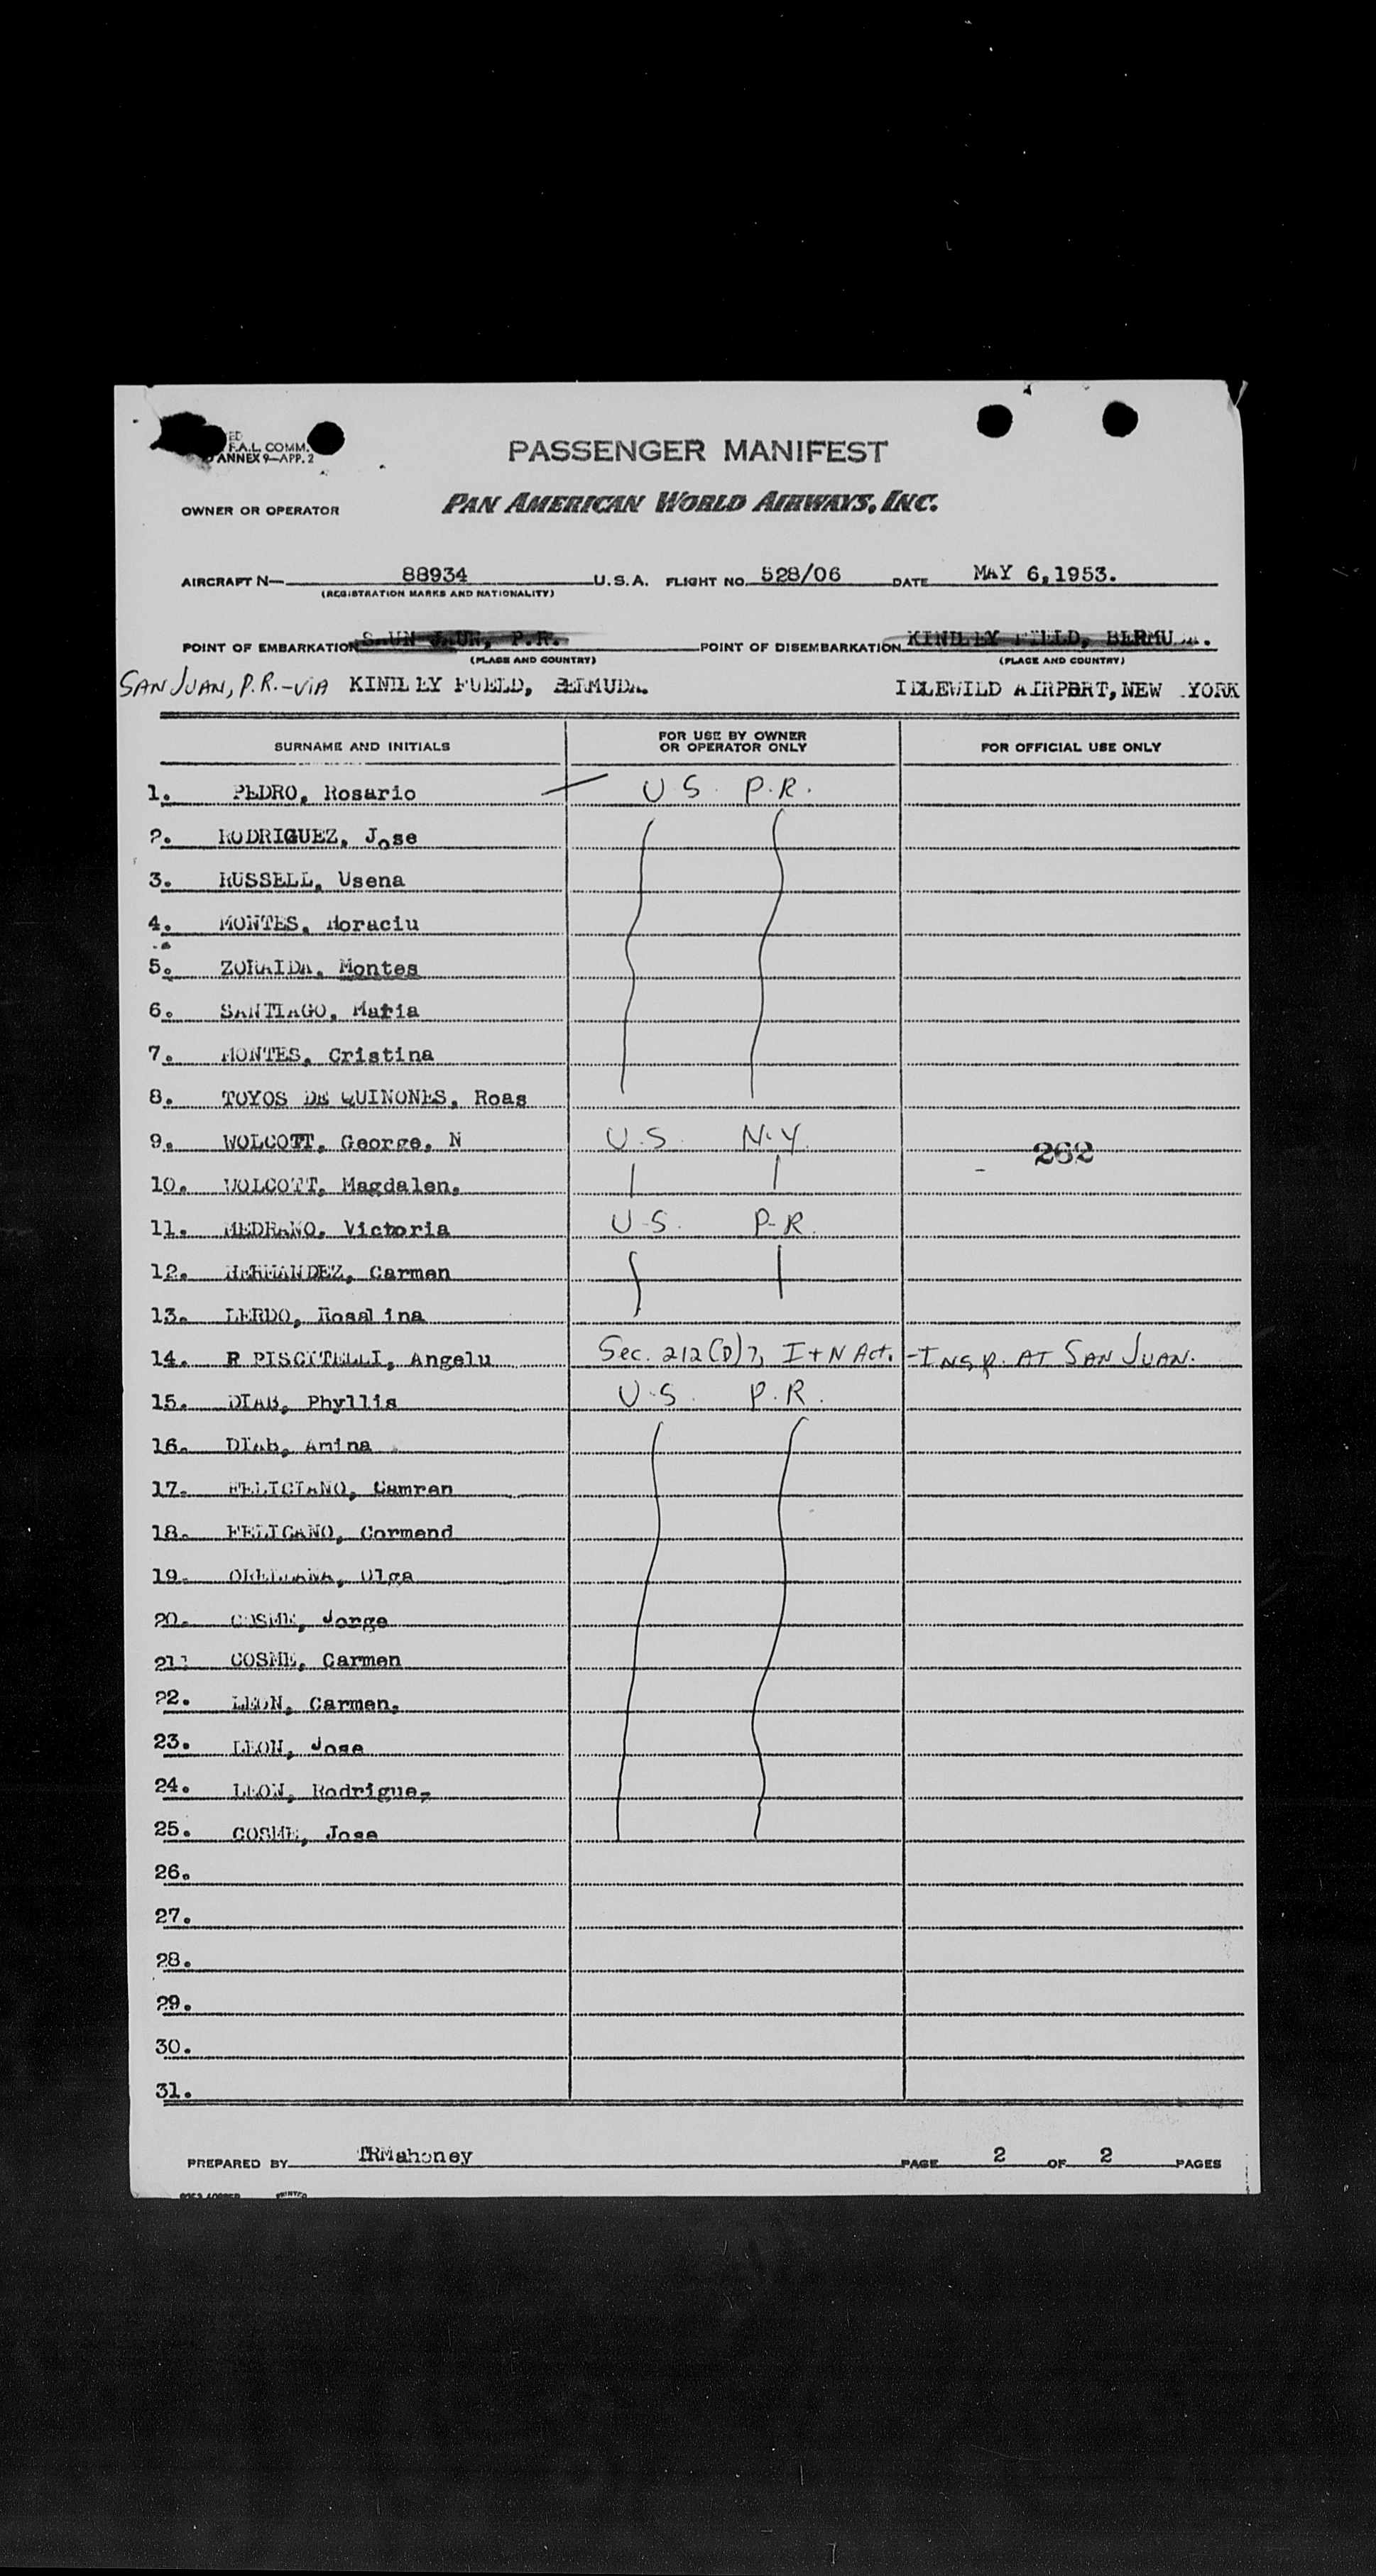 ED
F.A.L. COMM.
ANNEX 9—APP. 2
PASSENGER MANIFEST
OWNER OR OPERATOR PAN AMERICAN WORLD AIRWAYS, INC.
AIRCRAFT N— 88934 U.S.A. FLIGHT NO. 528/06 DATE MAY 6, 1953.
(REGISTRATION MARKS AND NATIONALITY)
POINT OF EMBARKATION SAUN JAUN, P.R. POINT OF DISEMBARKATION KINDLEY FIELD, BERMUDA.
(PLACE AND COUNTRY) (PLACE AND COUNTRY)
SAN JUAN, P.R. - VIA KINDLEY FUELD, BERMUDA. IDLEWILD AIRPORT, NEW YORK
SURNAME AND INITIALS FOR USE BY OWNER OR OPERATOR ONLY FOR OFFICIAL USE ONLY
1. PEDRO, Rosario U S. P.R.
2. RODRIGUEZ, Jose
3. RUSSELL, Usena
4. MONTES, Horaciu
5. ZORAIDA, Montes
6. SANTIAGO, Maria
7. MONTES, Cristina
8. TOYOS DE QUINONES, Roas
9. WOLCOTT, George, N U.S. N.Y. 262
10. WOLCOTT, Magdalen,
11. MEDRANO, Victoria U.S. P.R.
12. HERMANDEZ, Carmen
13. LERDO, Rosalina
14. R PISCITELLI, Angelu Sec. 212(D)7, I+N Act. - INSP. AT SAN JUAN.
15. DIAB, Phyllis U.S. P.R.
16. DIAB, Amina
17. FELICIANO, Camren
18. FELICANO, Cormend
19. ORELLANA, Olga
20. COSME, Jorge
21. COSME, Carmen
22. LEON, Carmen,
23. LEON, Jose
24. LEON, Rodrigue,
25. COSME, Jose
26.
27.
28.
29.
30.
31.
PREPARED BY TRMahoney PAGE 2 OF 2 PAGES